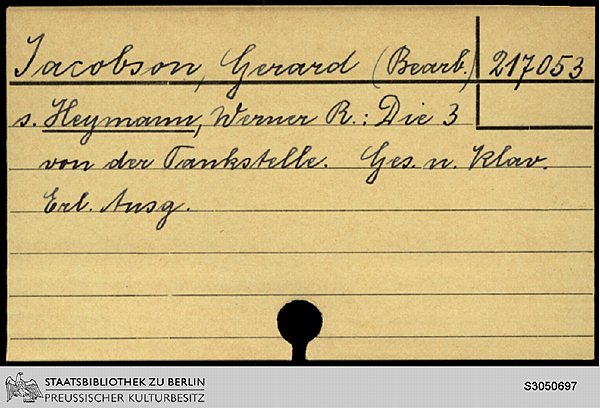 Jacobson, Gerard (Bearb.) 217053
s. Heymann, Werner R.: Die 3
von der Tankstelle. Ges. u. Klav.
Erl. Ausg.
STAATSBIBLIOTHEK ZU BERLIN
PREUSSISCHER KULTURBESITZ
S3050697